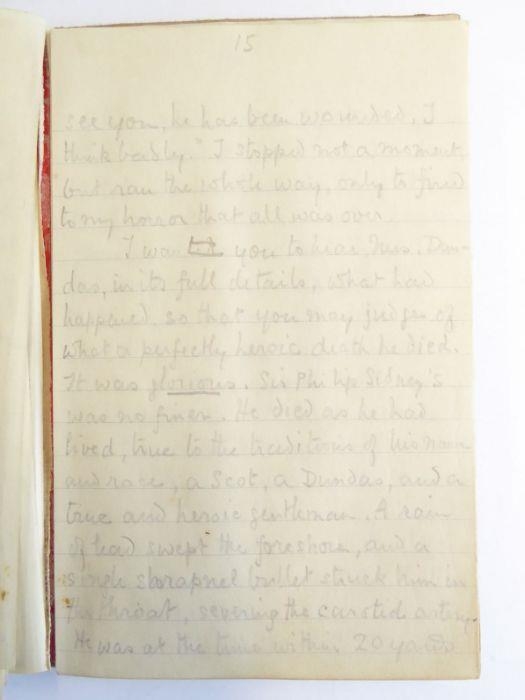 15
see you, he has been wounded, I
think badly." I stopped not a moment
but ran the whole way, only to find
to my horror that all was over.
I want you to hear, Mrs. Dun-
das, in its full details, what had
happened, so that you may judge of
what a perfectly heroic death he died.
It was glorious. Sir Philip Sidney's
was no finer. He died as he had
lived, true to the traditions of his name
and race, a Scot, a Dundas, and a
true and heroic gentleman. A rain
of lead swept the foreshore, and a
single shrapnel bullet struck him in
the throat, severing the carotid artery.
He was at the time within 20 yards